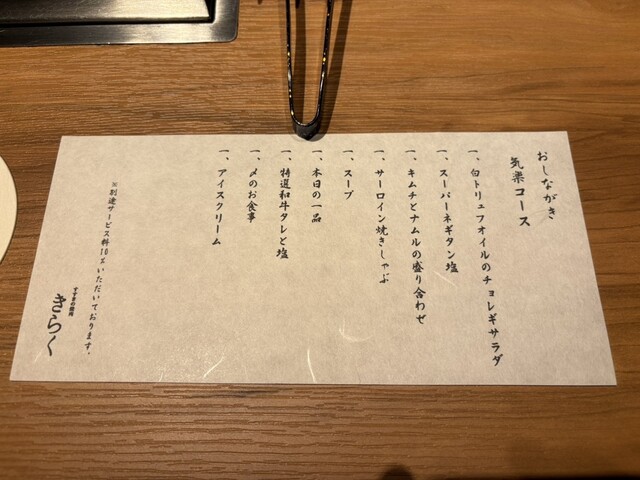 おしながき
気楽コース
一、白トリュフオイルのチョレギサラダ
一、スーパーネギタン塩
一、キムチとナムルの盛り合わせ
一、サーロイン焼きしゃぶ
一、スープ
一、本日の一品
一、特選和牛タレと塩
一、〆のお食事
一、アイスクリーム
※別途サービス料10%いただいております。
きらく